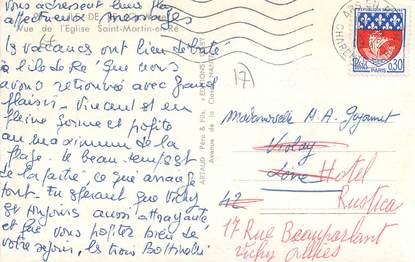 vous adressent leur plus
affectueux messages
DE
Vue de l'Eglise Saint-Martin-en-Ré
Les vacances ont bien débuté
à l'île de Ré que nous
avons retrouvée avec grand
plaisir. Vincent est en
pleine forme et profite
au maximum de la
plage. Le beau temps est
de la partie, ce qui arrange
tout. En espérant que Vichy
est toujours aussi attrayante
et que vous profitez bien de
votre séjour, les trois
ARTAUD Père & Fils, Editeurs
Avenue de la
17
REPUBLIQUE FRANÇAISE
0,30
PARIS
Mademoiselle M. A.
Violay
Loire Hotel
42 Rustica
17 Rue Beauparlant
Vichy Allier